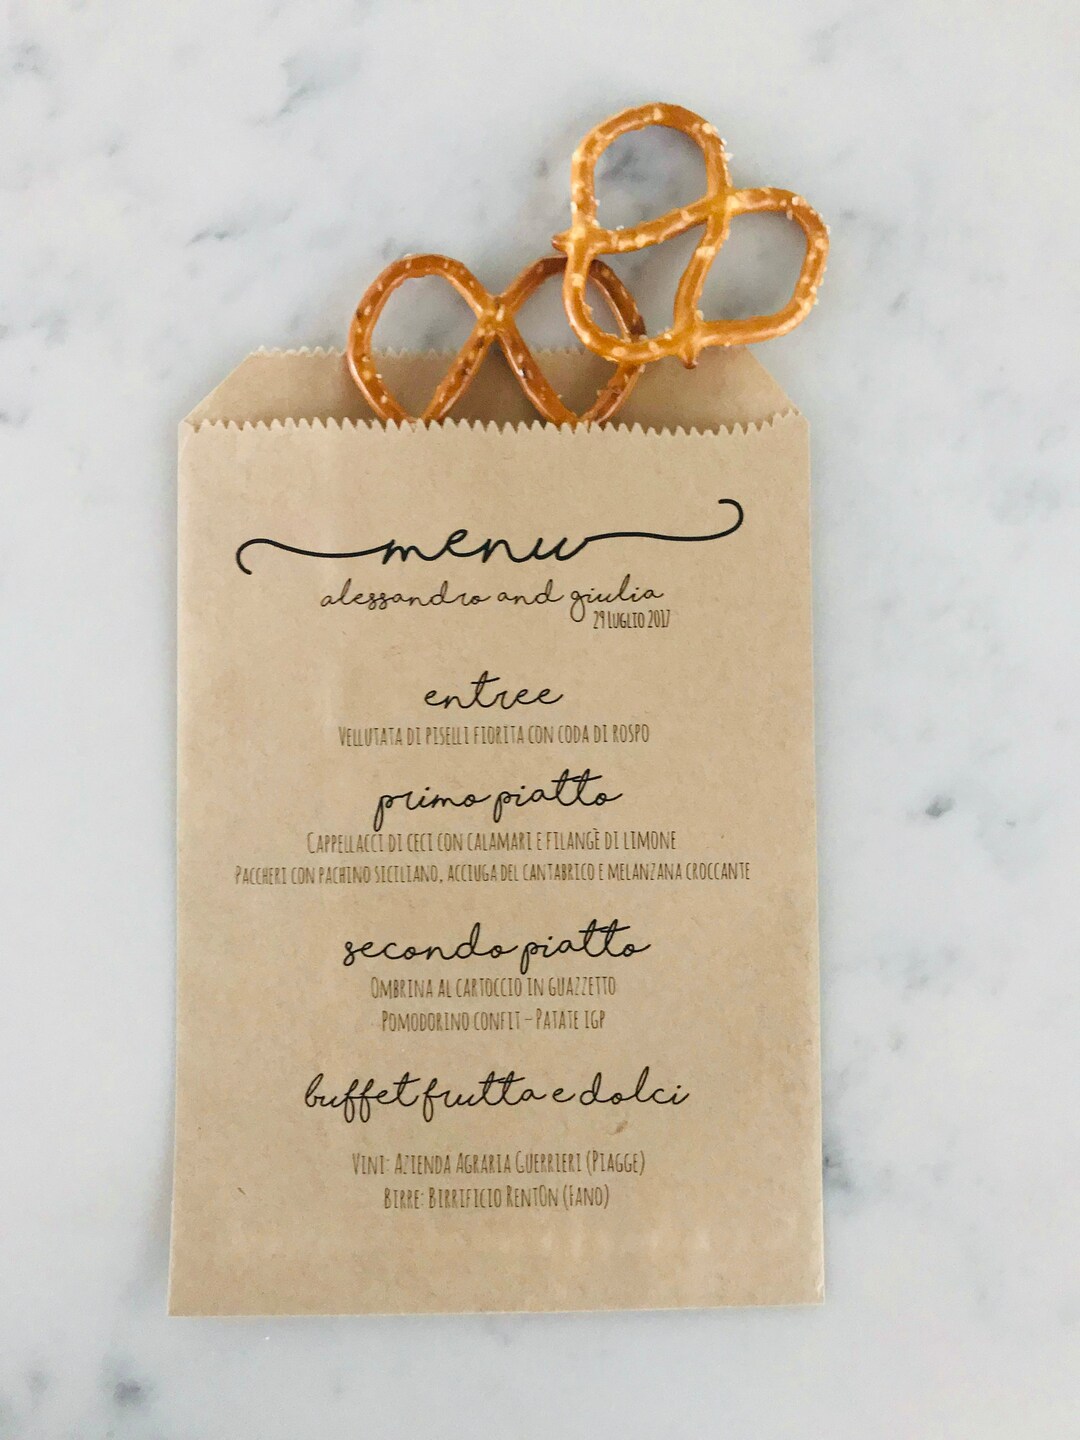 menu
alessandro and giulia
29 Luglio 2017
entree
Vellutata di piselli fiorita con coda di rospo
primo piatto
Cappellacci di ceci con calamari e filangè di limone
Paccheri con pachino siciliano, acciuga del cantabrico e melanzana croccante
secondo piatto
Ombrina al cartoccio in guazzetto
Pomodorino confit - Patate igp
buffet frutta e dolci
Vini: Azienda Agraria Guerrieri (Piagge)
Birre: Birrificio RentOn (Fano)